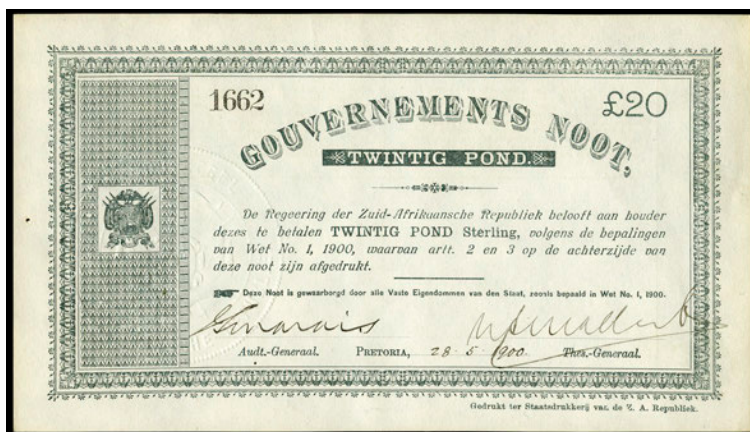 1662
£20
GOUVERNEMENTS NOOT,
TWINTIG POND.
De Regeering der Zuid-Afrikaansche Republiek belooft aan houder
dezes te betalen TWINTIG POND Sterling, volgens de bepalingen
van Wet No. 1, 1900, waarvan artt. 2 en 3 op de achterzijde van
deze noot zijn afgedrukt.
Deze Noot is gewaarborgd door alle Vaste Eigendommen van den Staat, zooals bepaald in Wet No. 1, 1900.
Audt.-Generaal. PRETORIA, 28.5.1900. Thes.-Generaal.
Gedrukt ter Staatsdrukkerij van de Z. A. Republiek.